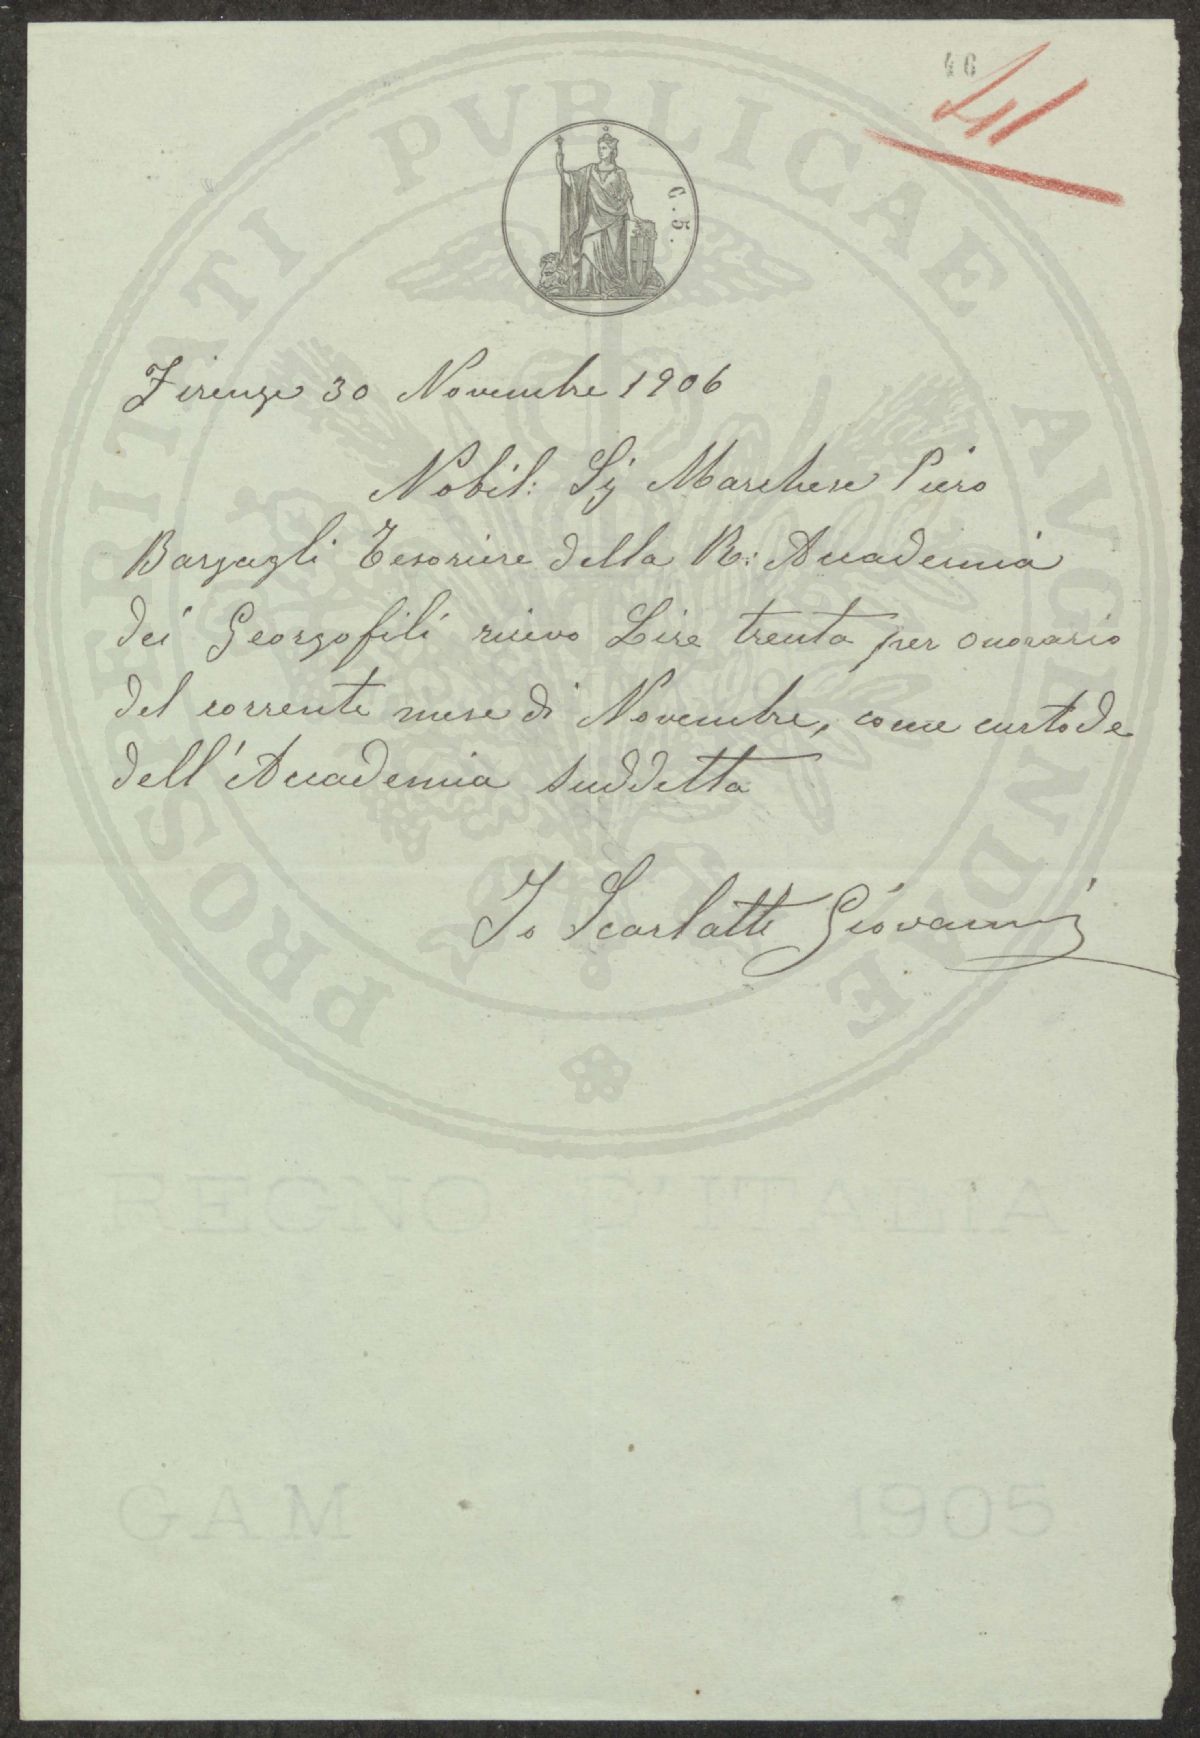 46
41
C. 5.
PROSPERITATI PVBLICAE AVGENDAE
Firenze 30 Novembre 1906
Nobil: Sig Marchese Piero
Bargagli Tesoriere della R: Accademia
dei Georgofili ricevo Lire trenta per onorario
del corrente mese di Novembre, come custode
dell'Accademia suddetta
Io Scarlatti Giovanni
REGNO D'ITALIA
GAM 1905